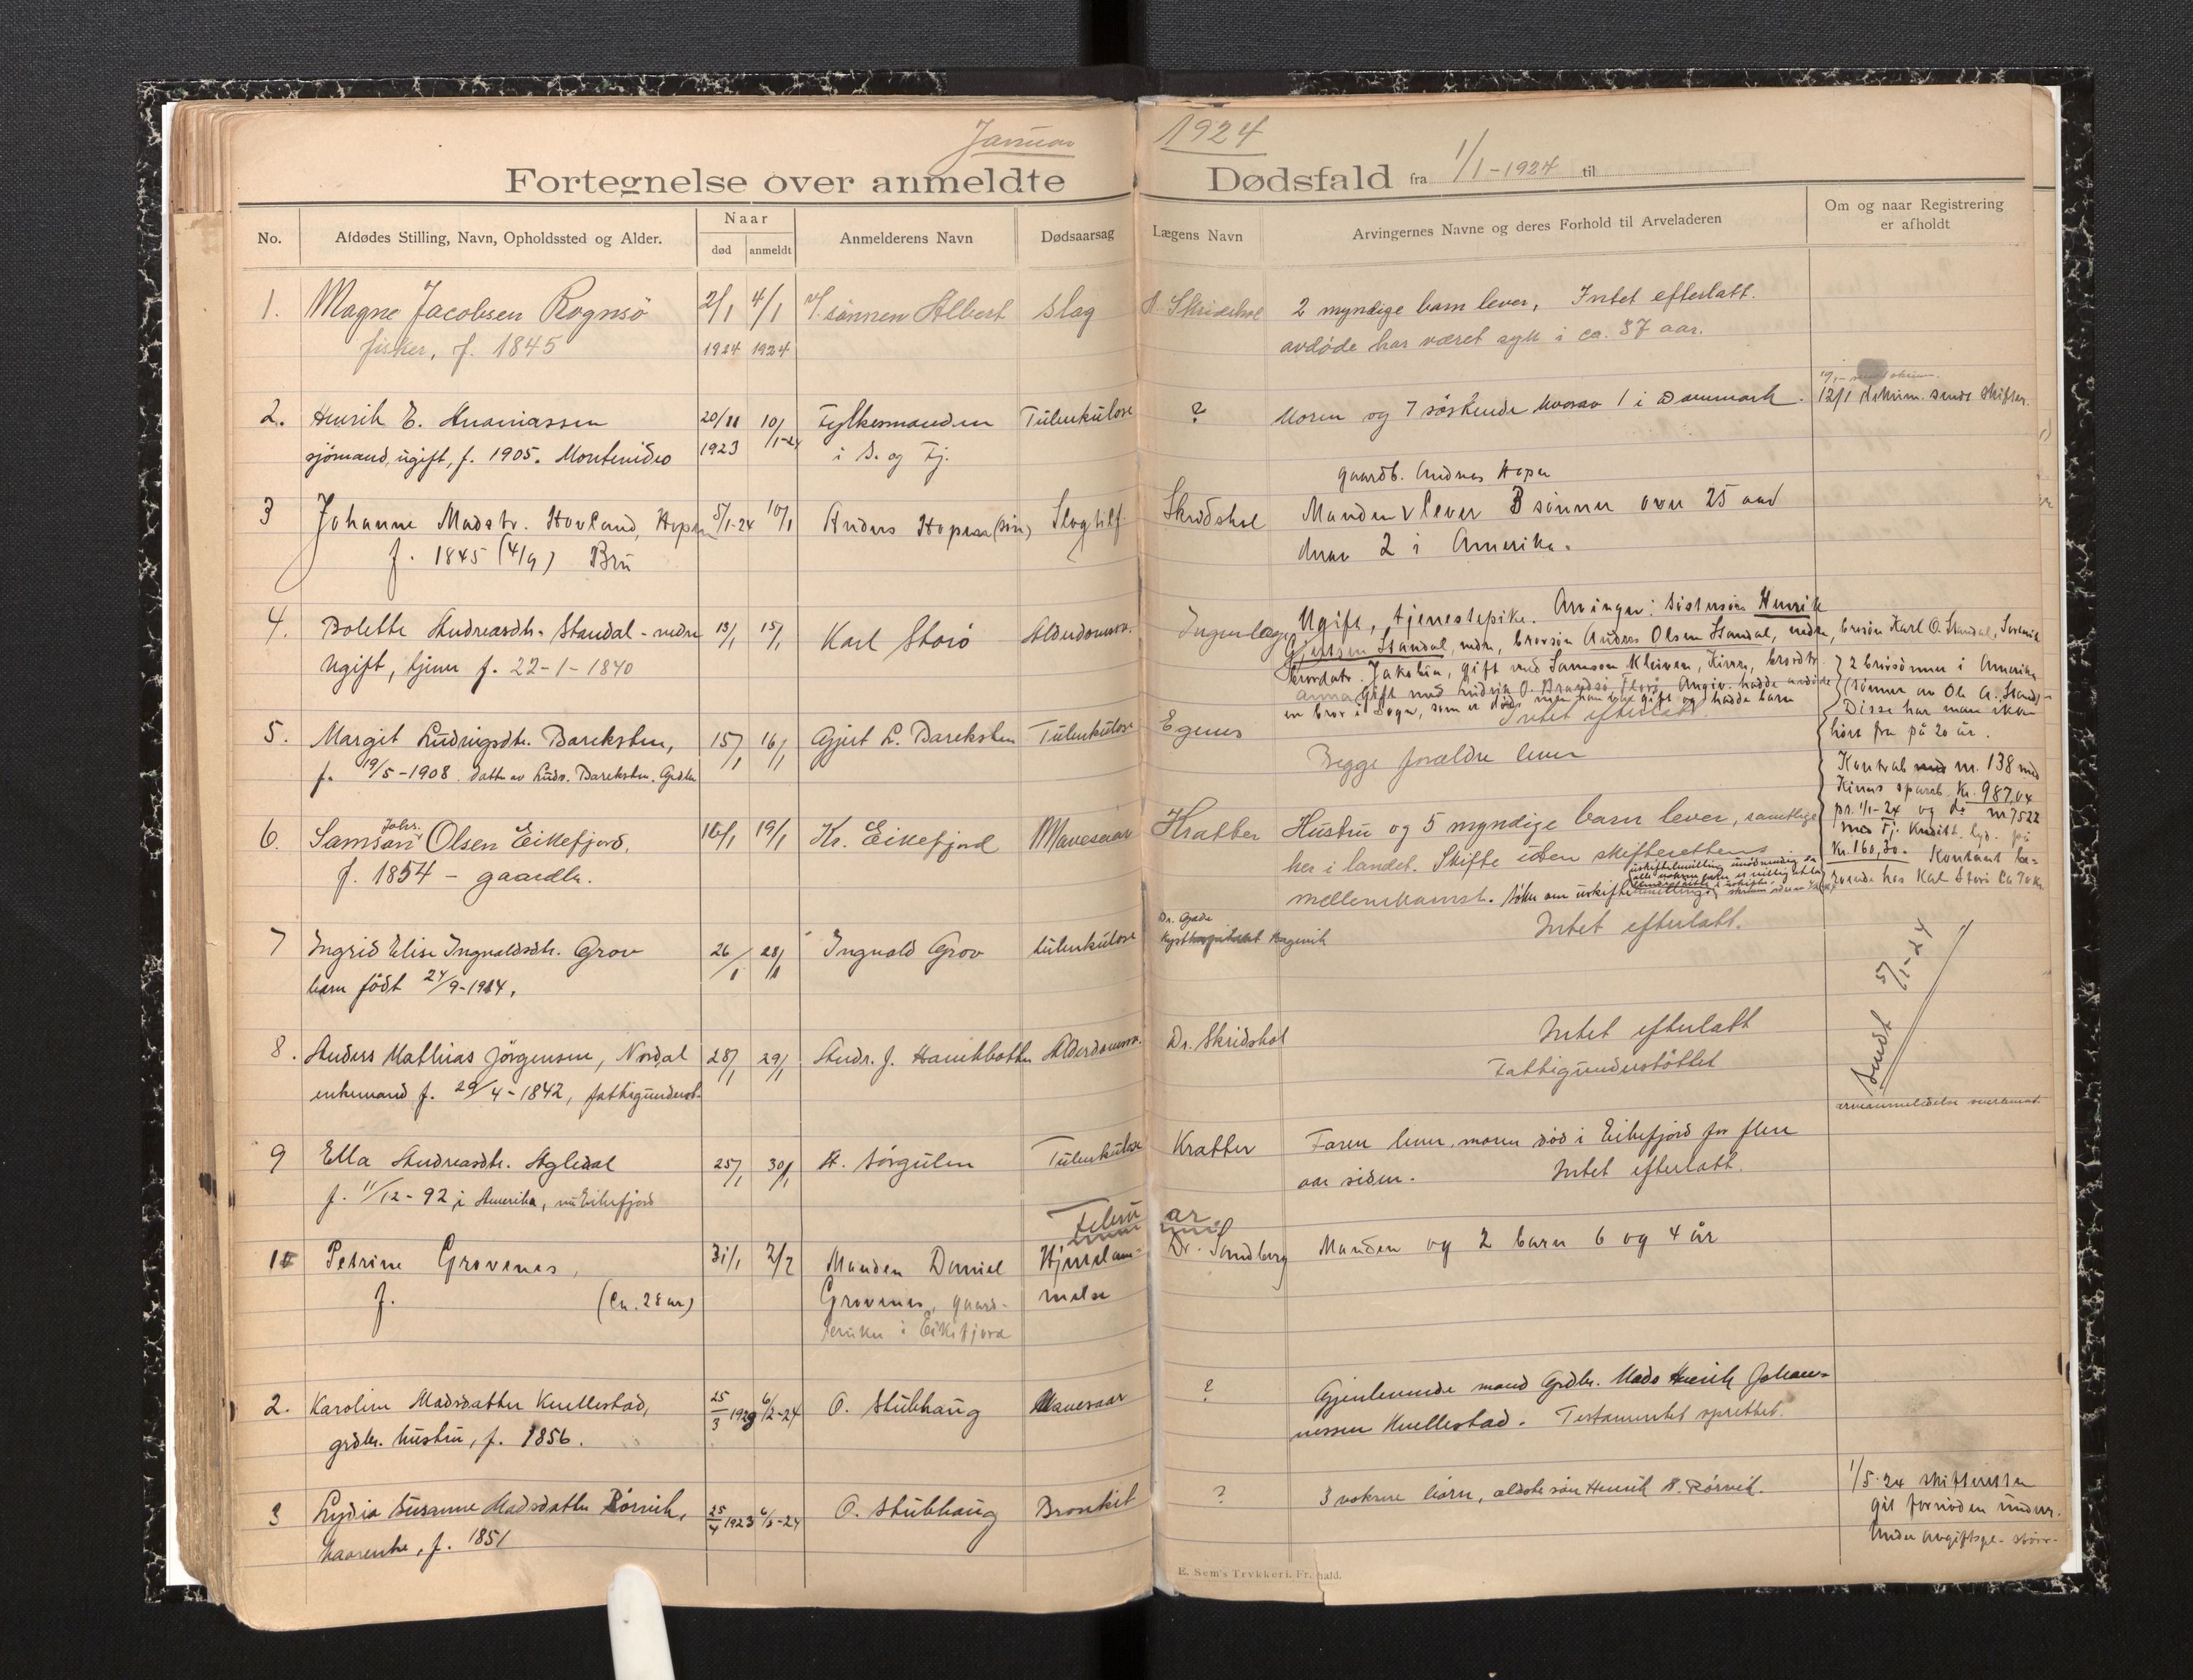 Januar 1924
Fortegnelse over anmeldte Dødsfald fra 1/1-1924 til
No.
Afdødes Stilling, Navn, Opholdssted og Alder.
Naar
død
anmeldt
Anmelderens Navn
Dødsaarsag
Lægens Navn
Arvingernes Navne og deres Forhold til Arveladeren
Om og naar Registrering
er afholdt
1. Magne Jacobsen Rognsö 2/1 4/1 v/ sønnen Albert slag Skridshol 2 myndige barn lever, Intet efterlatt.
fisker, f. 1845 1924 1924 avdøde har været syk i ca. 37 aar.
2. Henrik E. Ananiassen 20/11 10/1-24 Fylkesmanden Tuberkulose ? Moren og 7 søskende hvorav 1 i Danmark. 12/1 dekum. sendt skifter.
sjømand, ugift, f. 1905. Montevideo 1923 i S. og Fj.
gaardb. Andreas Hopen
3 Johanne Madstr. Hovland, Hopen 5/1-24 10/1 Anders Hopen (søn) Slagtilf. Skridshol Manden v lever 3 sønner over 25 aar
f. 1845 (4/9) Bru derav 2 i Amerika.
4. Bolette Andreasdtr. Standal-nedre 13/1 15/1 Karl Storö Alderdomssv. Ingen læge Ugift, tjenestepike. Arvinger: søstersøn Henrik
Ugift, tjener f. 22-1-1840 Gjertsen Standal, nedre, brorsøn Andreas Olsen Standal, nedre, brorsøn Karl O. Standal,
brordatr. Jakobia, gift med Samson Kleiven, Kinn, brordtr. 2 brorsønner i Amerika
Anna gift med Ludvik O. Brandsö Florö. Angiv. hadde avdøde (sønner av Ole A. Stand)
en bror i Sogn, som er død men han var gift og hadde barn Disse har man ikke
Intet efterlatt hørt fra på 20 år.
5. Margit Ludvigsdtr. Bareksten, 15/1 16/1 Gjert L. Bareksten Tuberkulose Egenes Begge forældre lever
f. 19/5-1908. datter av Ludv. Bareksten. Grdbr.
Kontrab med nr. 138 med
Kinns spareb. Kr. 987,04
pr. 1/1-24 og do nr 7522
med Fj. Kreditb. lyd. på
Kr. 160,30. Kontant be-
roende hos Karl Storö Ca 70 kr.
6. Samson Johs. Olsen Eikefjord, 16/1 19/1 Kr. Eikefjord Mavesaar Kratter Hustru og 5 myndige barn lever, samtlige
f. 1854 - gaardbr. her i landet. Skifte uten skifterettens
mellemkomst. Søker om uskifte
Intet efterlatt.
7 Ingrid Elise Ingvaldsdtr. Grov 26/1 28/1 Ingvald Grov tuberkulose Dr. Gade
barn født 24/9-1914. Kysthospitalet Hagevik
8. Anders Mathias Jörgensen, Nordal 28/1 29/1 Andr. J. Hambbotten Alderdomssv. Dr. Skridshol Intet efterlatt
enkemand f. 29/4-1842, fattigunderst. Fattigunderstöttet
Sendt 5/1-24
arveanmeldelse
9 Ella Andreasdtr. Aglidal 25/1 30/1 A. Sørgulen Tuberkulose Kratter Faren lever, moren död i Eikefjord for flere
f. 11/12-92 i Amerika, nu Eikefjord aar siden. Intet efterlatt.
Februar
1 Petrine Grovenes, 31/1 2/2 Manden Daniel Hjernelam- Dr. Sandberg Manden og 2 barn 6 og 4 år
f. (Ca. 28 aar) Grovenes, gaard- melse
bruker i Eikefjord
2. Karoline Madsdatter Kvellestad, 25/3 1923 6/2-24 O. Stubhaug Mavesaar ? Gjenlevende mand Grdbr. Mads Henrik Johan-
grdbr. hustru, f. 1856. nessen Kvellestad. Testamentet oprettet.
3 Lydia Susanne Madsdatter Rörvik, 25/4 1923 6/2-24 O. Stubhaug Bronkit ? 3 voksne børn, ældste søn Henrik R. Rörvik. 1/5-24 skifteretten
kaarenke, f. 1851 git fornöden underr.
Under avgiftspl.
E. Sem's Trykkeri, Fr.hald.